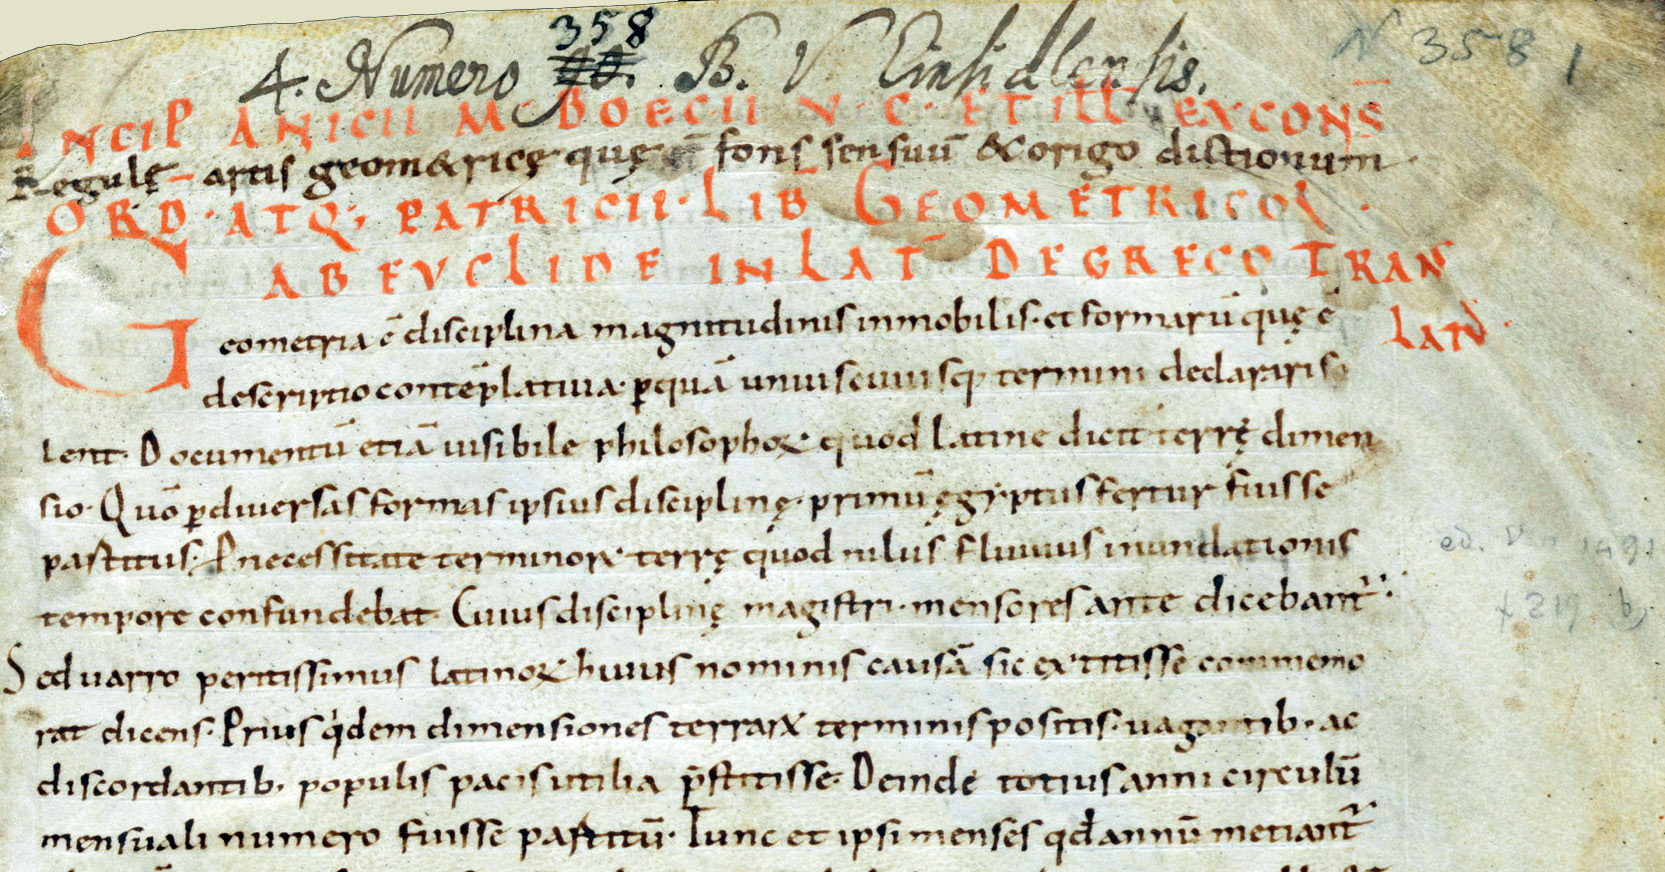 358
4. Numero B. V Einsidlensis.
N 358 1
INCIP ANICII M BOECII V · C · ET ILL EX CONS̄
Regulę artis geom&ricę quę ē fons sensuū & origo dictionum ·
ORD · ATQ; PATRICII · LIB GEOMETRICOꝝ ·
AB EUCLIDE IN LAT̄ DE GRECO TRAN
LATI
Geometria ē disciplina magnitudinis inmobilis · et formarū quę ē
descriptio contēplatiua · ꝑ quā uniuscuiusq; termini declarari so
lent · Documentū etiā uisibile philosophoꝝ quod latine dicit terrę dimen
sio · Quō ꝑ diuersas formas ipsius disciplinę · primū ęgyptus fertur fuisse
partitus · P necessitate terminoꝝ terrę quod nilus fluuius inundationis
tempore confundebat · Cuius disciplinę magistri · mensores ante dicebant᷑ ·
Sed uarro peritissimus latinoꝝ huius nominis causā sic extitisse commemo
rat dicens · Prius qͥdem dimensiones terraꝝ terminis positis · uagantib · ac
discordantib · populis pacis utilia p̄stitisse · Deinde totius anni circulū
mensuali numero fuisse partitū · Tunc et ipsi menses qđ annū metiant᷑
ed. Ven 1491
f 219 b